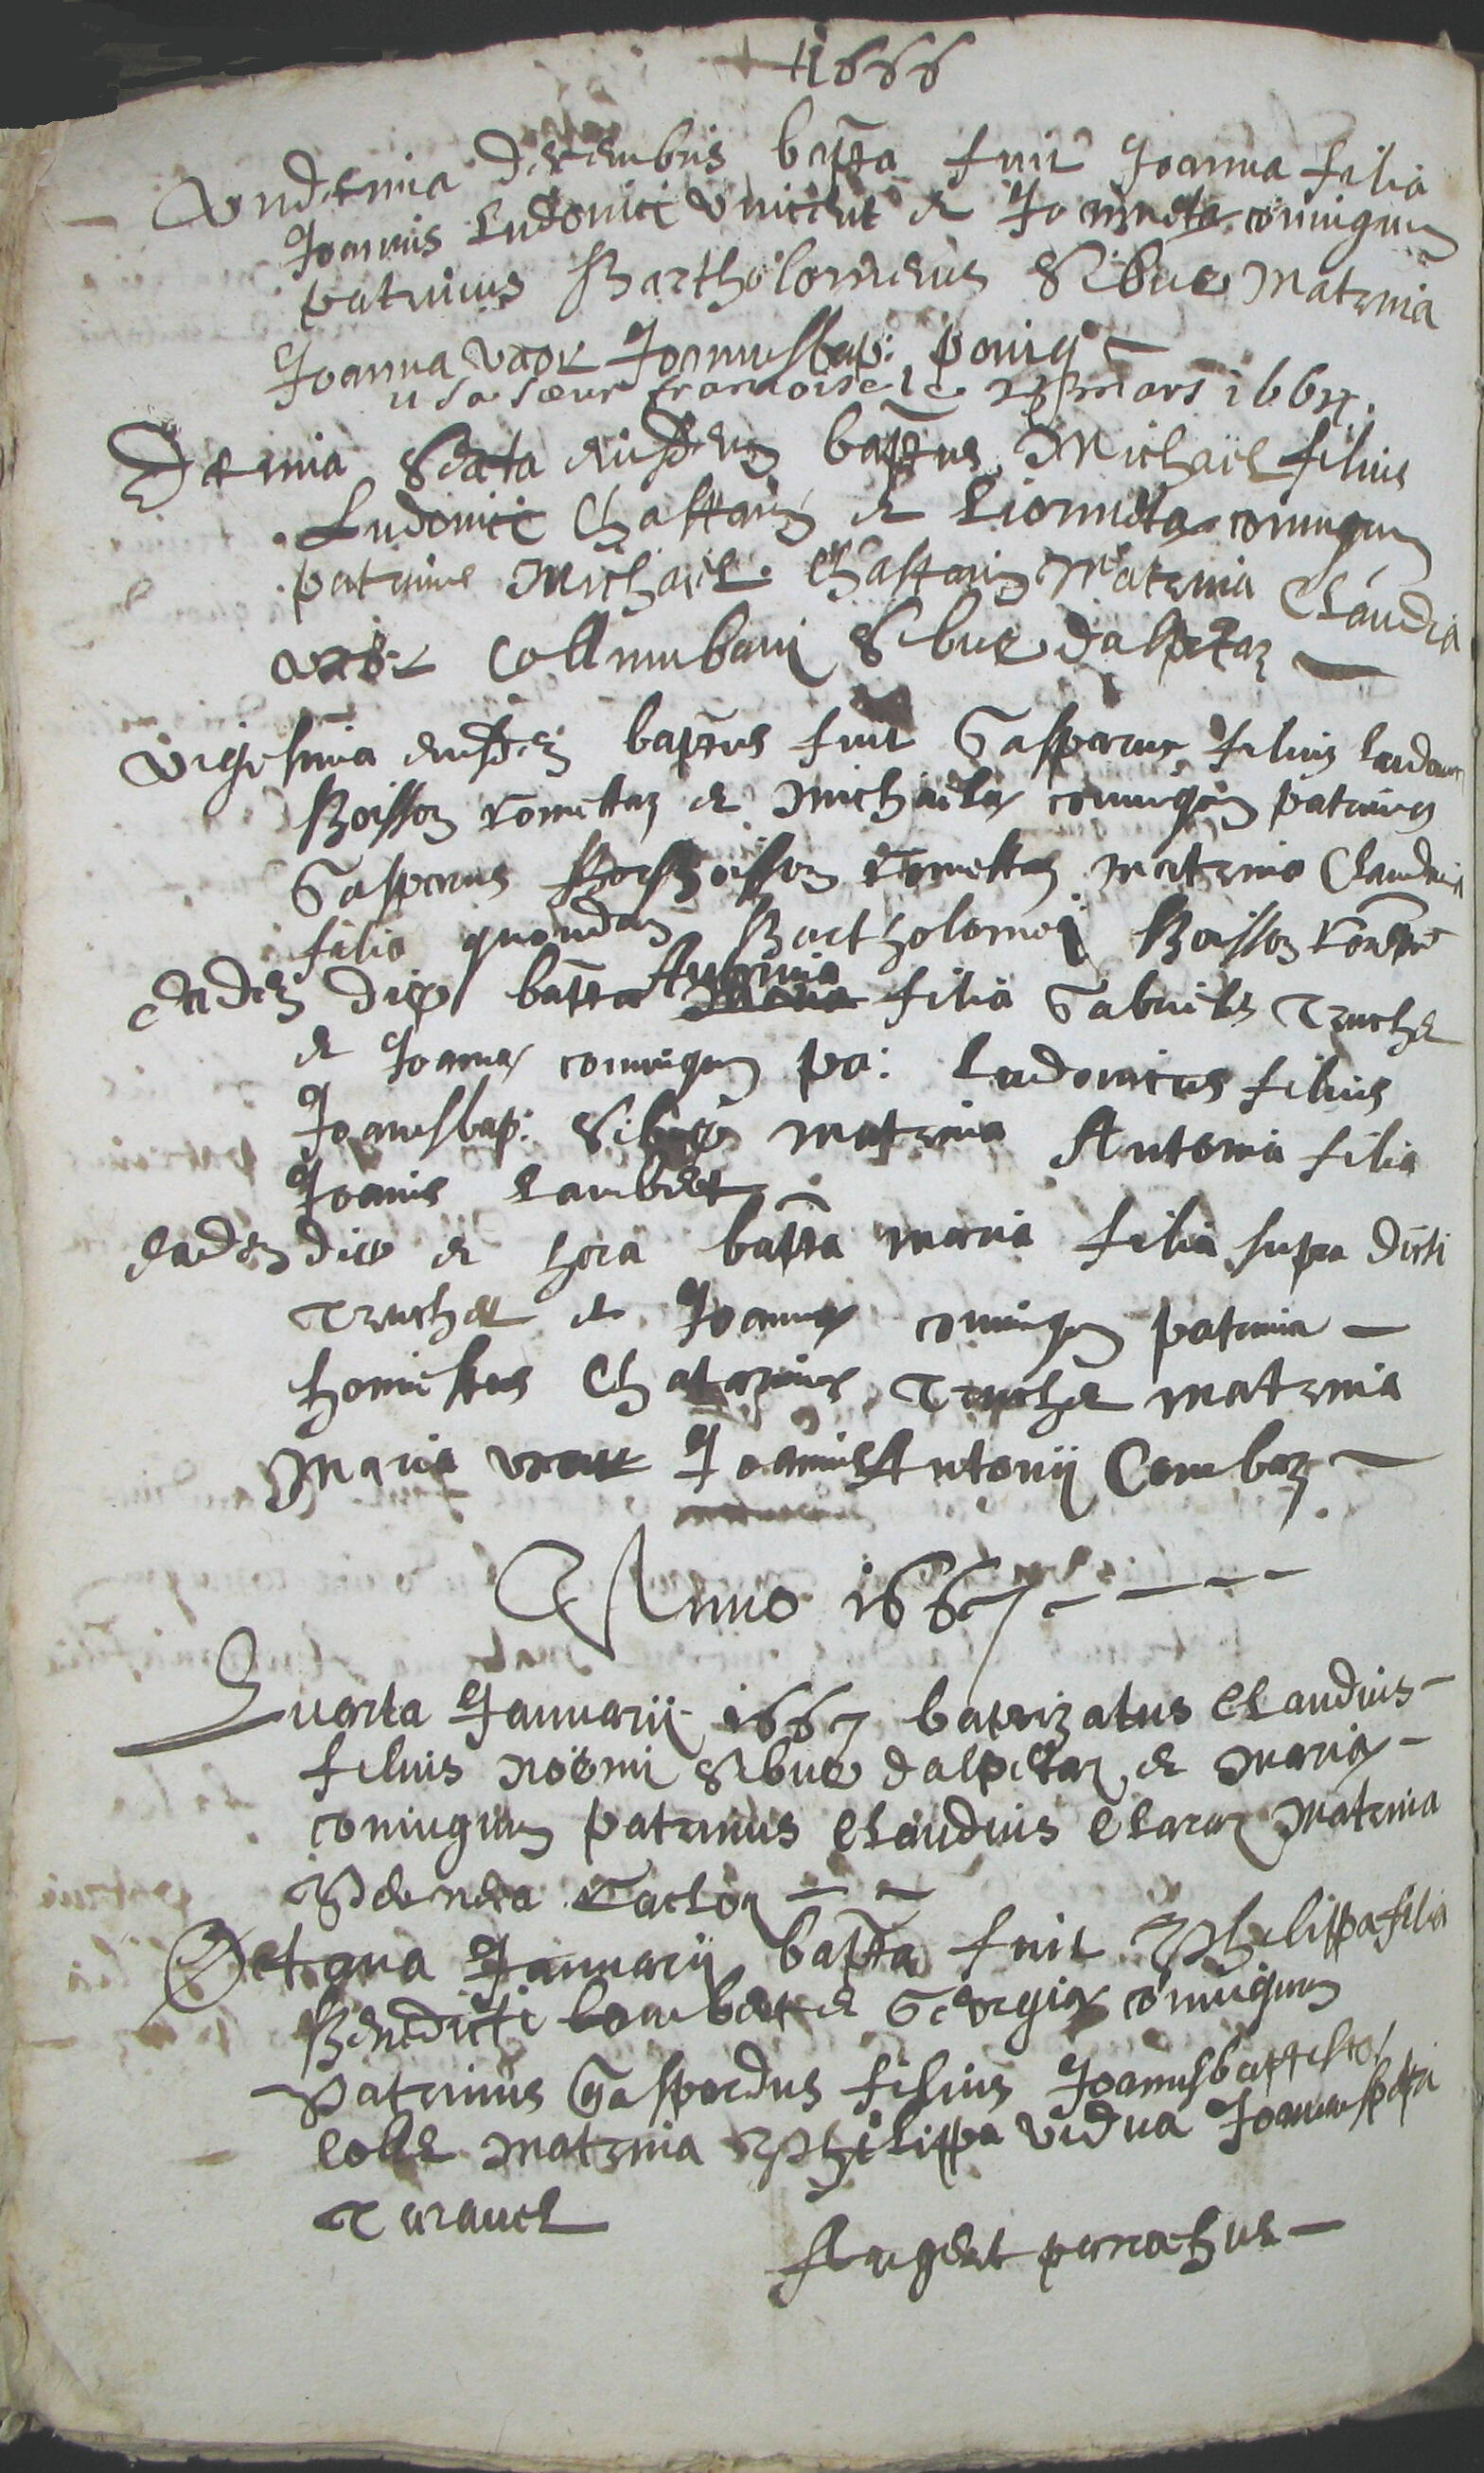 1666
Undecima decembris bapta fuit Joanna filia
Joannis Ludovici Vincent et Jo mneta coniugum
patrinus Bartholomeus Sibue Matrina
Joanna uxor Joannisbap:
u sa sœur francoise le mars 166
Decima Sexta eiusdem baptus Michaël filius
Ludovici Chastain et coniugum
patrinus Michaël Chastain Matrina Claudia
uxor Collumbani Sibue dalpetaz
Vigesima eiusdem baptus fuit Gasparus filius
Boisson et Michaelæ coniugum patrinus
Gasparus Boisson matrina Claudia
filia quondam Bartholomei Boisson
eadem die bapta Antonia filia Gabrielis Truchet
et Joannæ coniugum pa: Ludovicus filius
Joannisbap: Sibue matrina Antonia filia
Joannis Lambert
eadem die et hora bapta maria filia supra dicti
Truchet et Joannæ coniugum patrinus
honestus Truchet matrina
Maria uxor Joannis Antonij Combaz
Anno 1667
Quarta Januarij 1667 baptizatus Claudius
filius Noëmi Sibue dalpetaz et Mariæ
coniugum patrinus Claudius Claraz Matrina
Octava Januarij bapta fuit Philippa filia
Benedicti Lambert et Georgiæ coniugum
Patrinus Gaspardus filius Joannisbaptistæ
Collet matrina Philippa vidua
Turavel
Auget parrochus